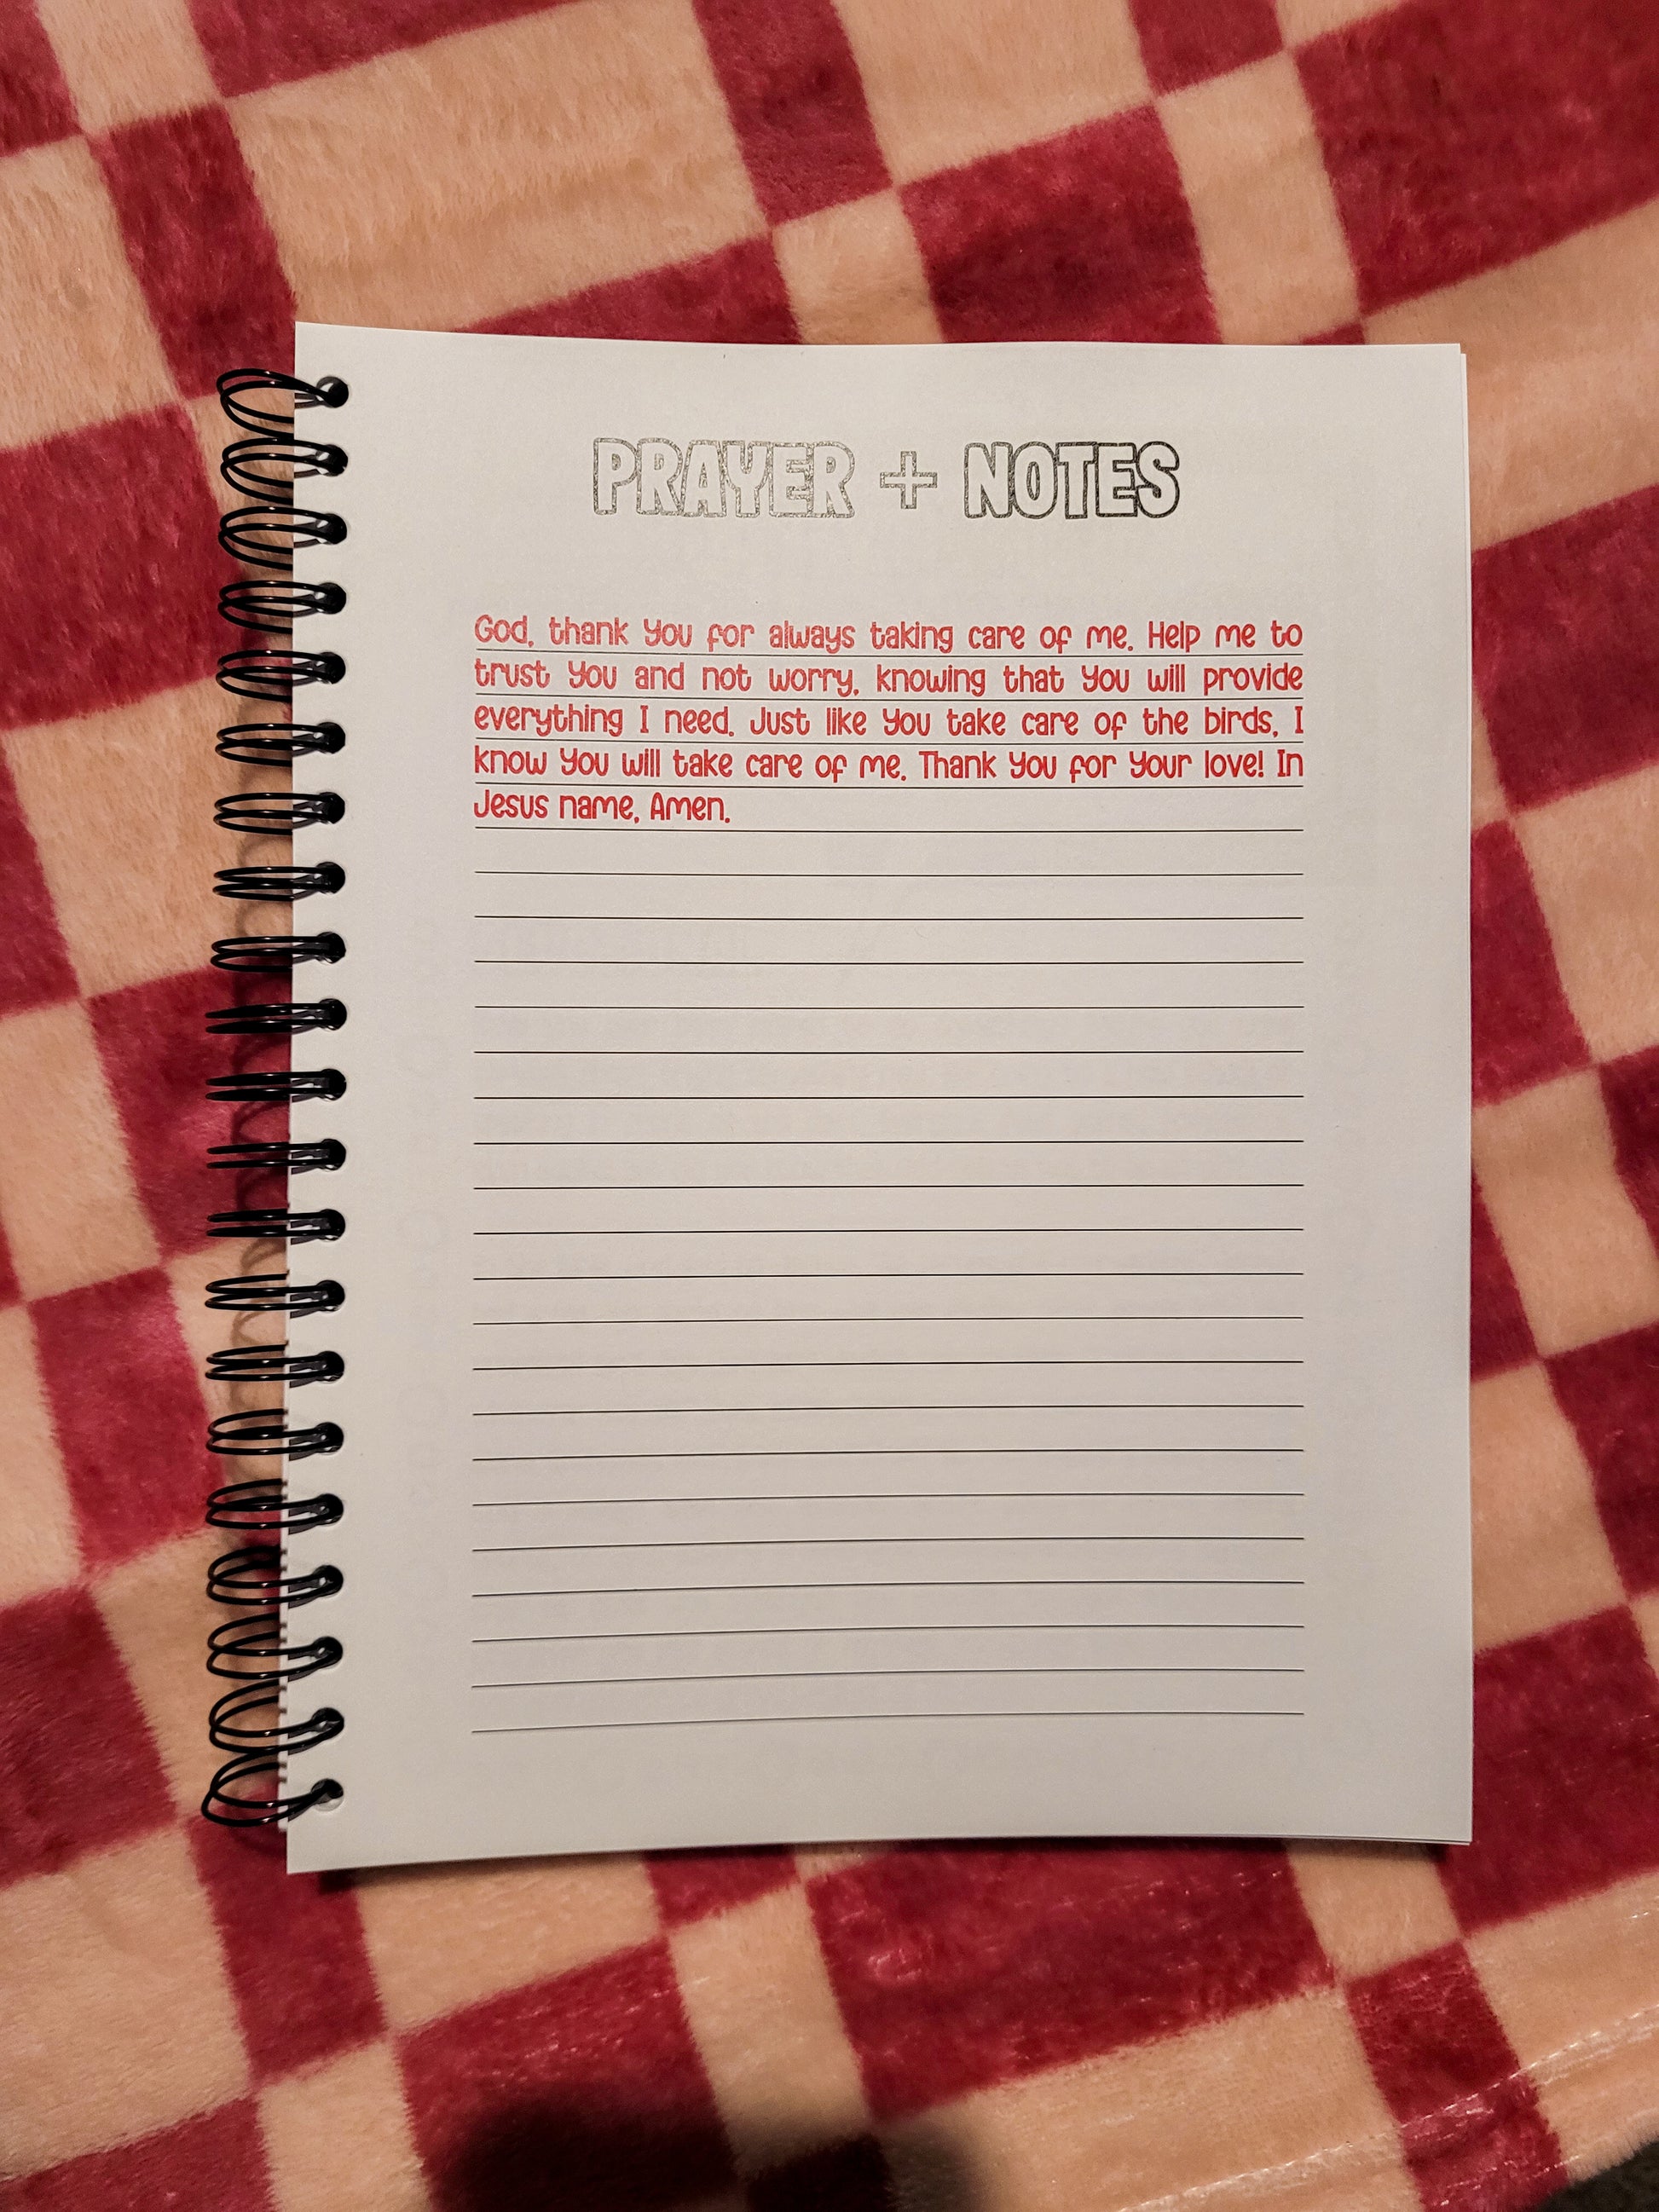 PRAYER + NOTES
God, thank You for always taking care of me. Help me to
trust You and not worry, knowing that You will provide
everything I need. Just like You take care of the birds, I
know You will take care of me. Thank You for Your love! In
Jesus name, Amen.